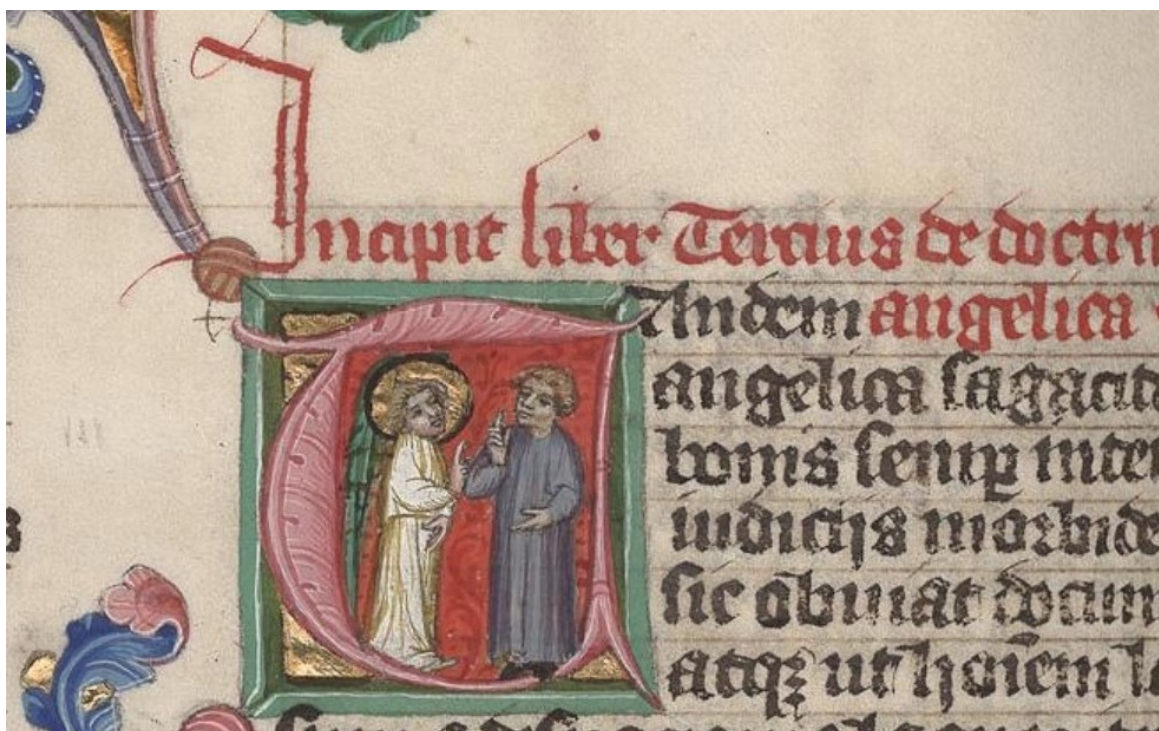 Incipit liber Tercius de doctrin
Tandem angelica
angelica sagacid
bonis semꝑ inte
iudicijs morbide
sic obuiat docum
atqꝫ ut hoīem